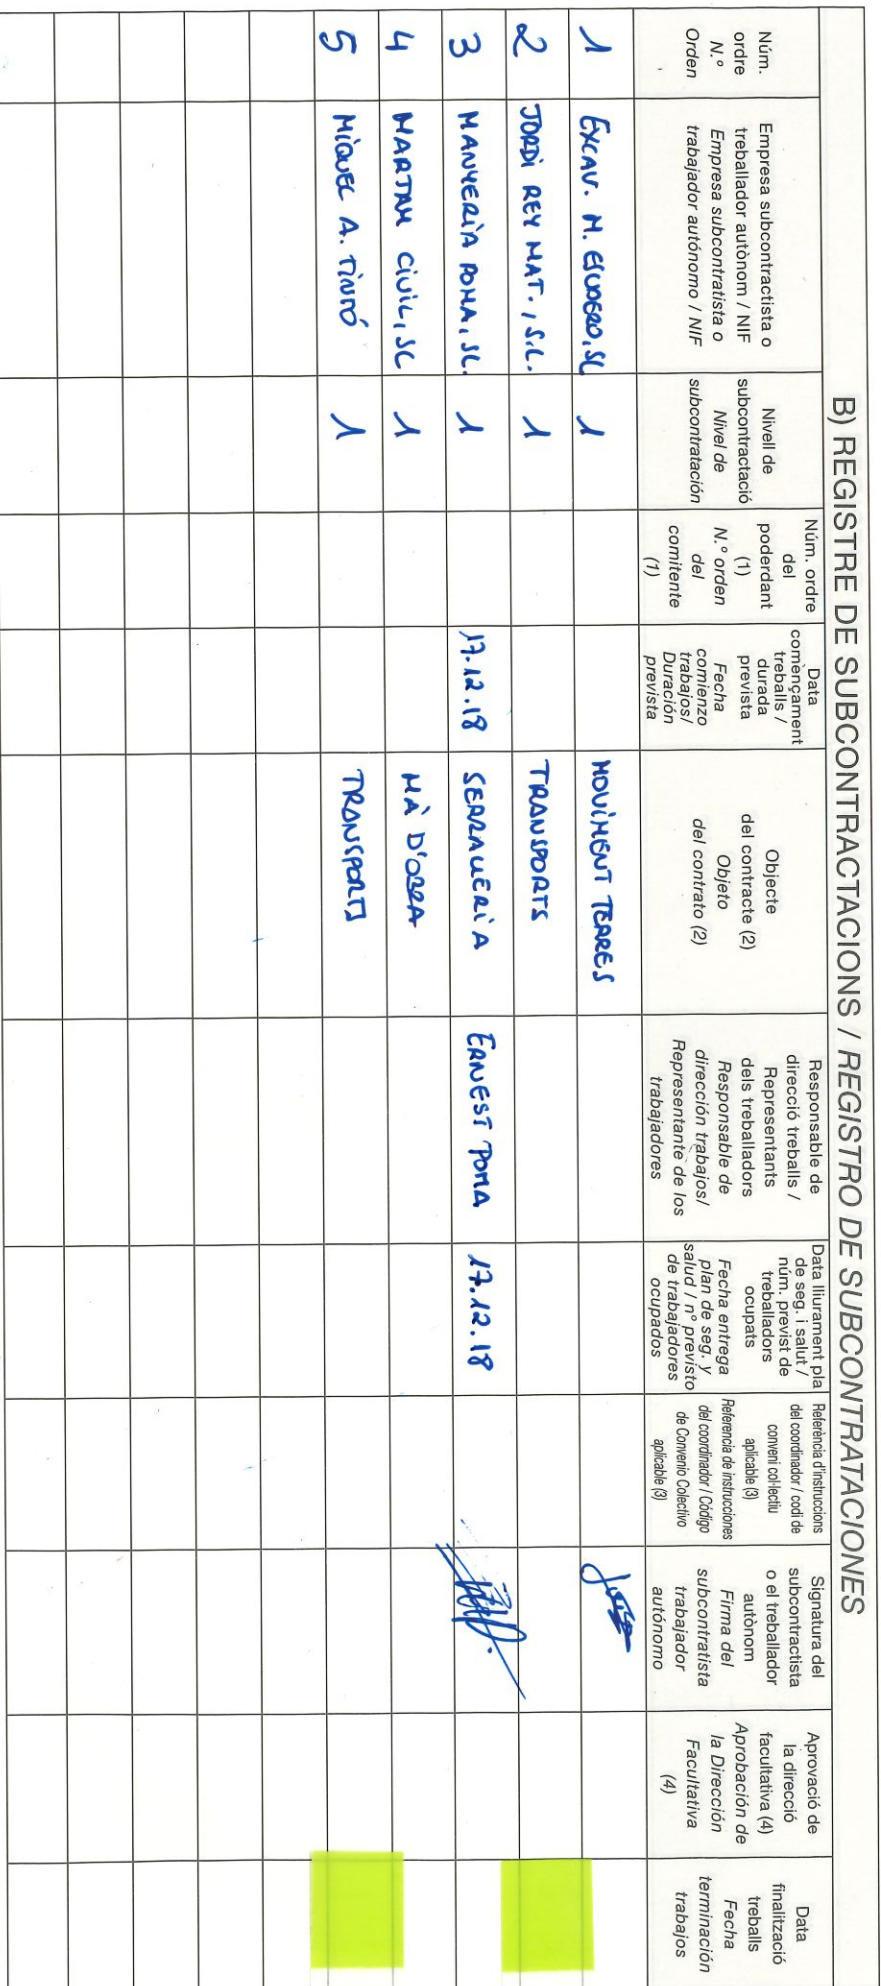 B) REGISTRE DE SUBCONTRACTACIONS / REGISTRO DE SUBCONTRATACIONES
Núm.
ordre
N.º
Orden
Empresa subcontractista o
treballador autònom / NIF
Empresa subcontratista o
trabajador autónomo / NIF
Nivell de
subcontractació
Nivel de
subcontratación
Núm. ordre
del
poderdant
(1)
N.º orden
del
comitente
(1)
Data
començament
treballs /
durada
prevista
Fecha
comienzo
trabajos/
Duración
prevista
Objecte
del contracte (2)
Objeto
del contrato (2)
Responsable de
direcció treballs /
Representants
dels treballadors
Responsable de
dirección trabajos/
Representante de los
trabajadores
Data lliurament pla
de seg. i salut /
núm. previst de
treballadors
ocupats
Fecha entrega
plan de seg. y
salud / nº previsto
de trabajadores
ocupados
Referència d'instruccions
del coordinador / codi de
conveni col·lectiu
aplicable (3)
Referencia de instrucciones
del coordinador / Código
de Convenio Colectivo
aplicable (3)
Signatura del
subcontractista
o el treballador
autònom
Firma del
subcontratista
trabajador
autónomo
Aprovació de
la direcció
facultativa (4)
Aprobación de
la Dirección
Facultativa
(4)
Data
finalització
treballs
Fecha
terminación
trabajos
1 EXCAV. M. ESCUDERO, SL 1 MOVIMENT TERRES
2 JORDI REY MAT., S.L. 1 TRANSPORTS
3 MANYERIA POMA, SL. 1 17.12.18 SERRALLERIA ERNEST POMA 17.12.18
4 MARTAM CIVIL, SL 1 MÀ D'OBRA
5 MIQUEL A. TINTÓ 1 TRANSPORTS